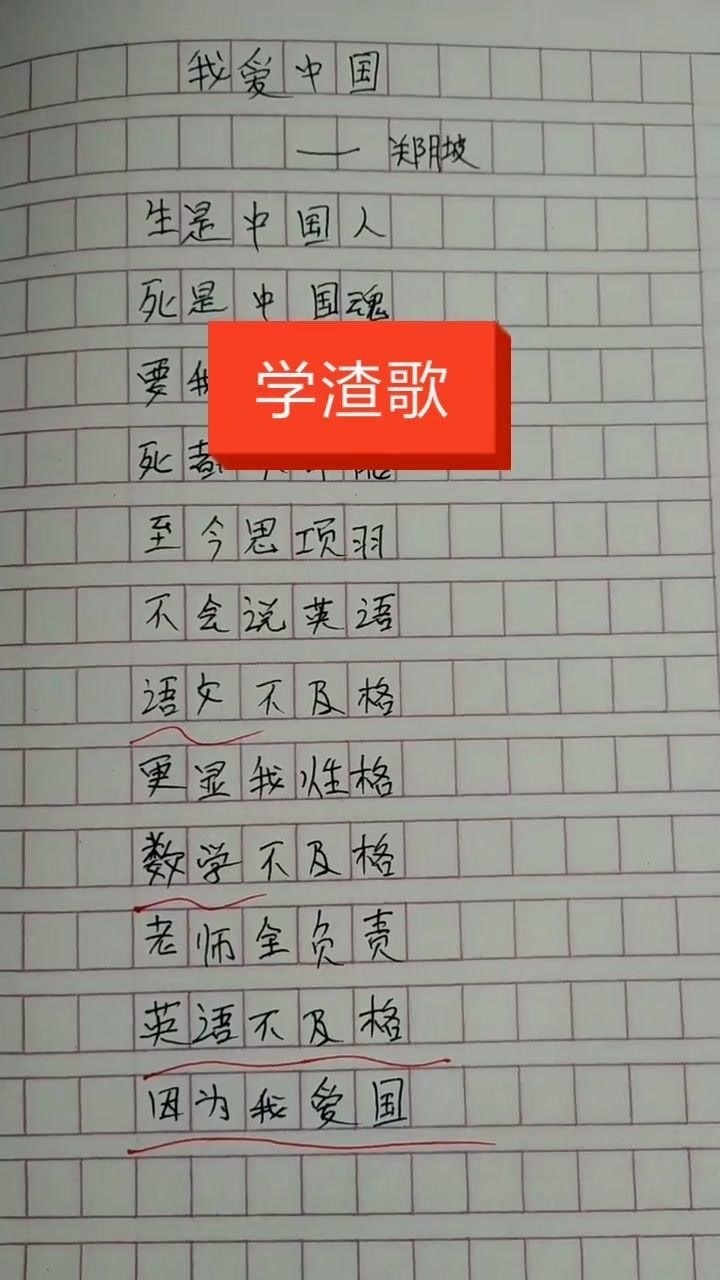 我爱中国
—— 郑阳坡
生是中国人
死是中国魂
要我
学渣歌
死都
至今思项羽
不会说英语
语文不及格
更显我性格
数学不及格
老师全负责
英语不及格
因为我爱国